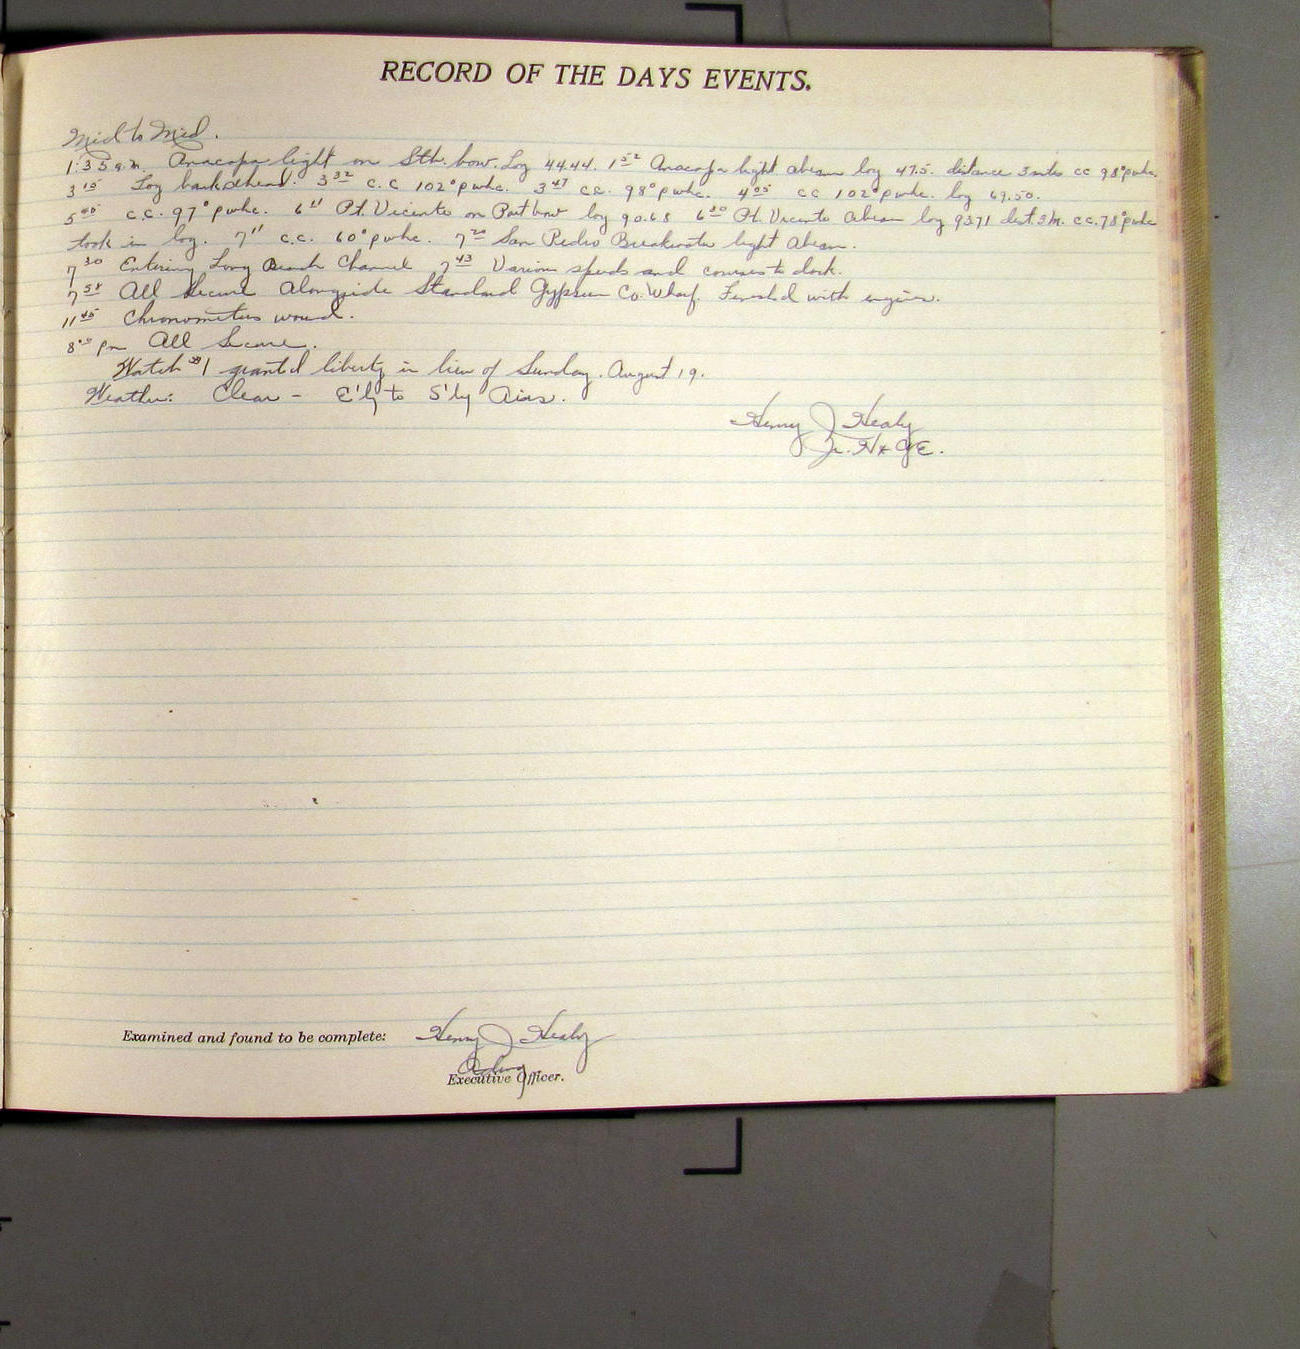 RECORD OF THE DAYS EVENTS.
Mid to Mid.
1:35 a.m. Anacapa light on Stb. bow. Log 44.44. 1 52 Anacapa light abeam log 47.5. distance 3 miles cc 98° pwhc.
3 15 Log bank ahead. 3 32 c.c 102° pwhc. 3 47 cc. 98° pwhc. 4 05 cc 102° pwhc. log 69.50.
5 40 c.c. 97° pwhc. 6 11 Pt. Vicente on Port bow log 90.68 6 30 Pt. Vicente abeam log 9371 dist. 3 M. cc. 78° pwhc
took in log. 7 11 c.c. 60° pwhc. 7 20 San Pedro Breakwater light abeam.
7 30 Entering Long Beach Channel 7 43 Various speeds and courses to dock.
7 58 All Secure Alongside Standard Gypsum Co. Wharf. Finished with engines.
11 45 Chronometers wound.
8 00 pm All Secure.
Watch #1 granted liberty in lieu of Sunday. August 19.
Weather: Clear - E'ly to S'ly Airs.
Henry J Healy
Jr. H & G E.
Examined and found to be complete: Henry J Healy
Acting
Executive Officer.